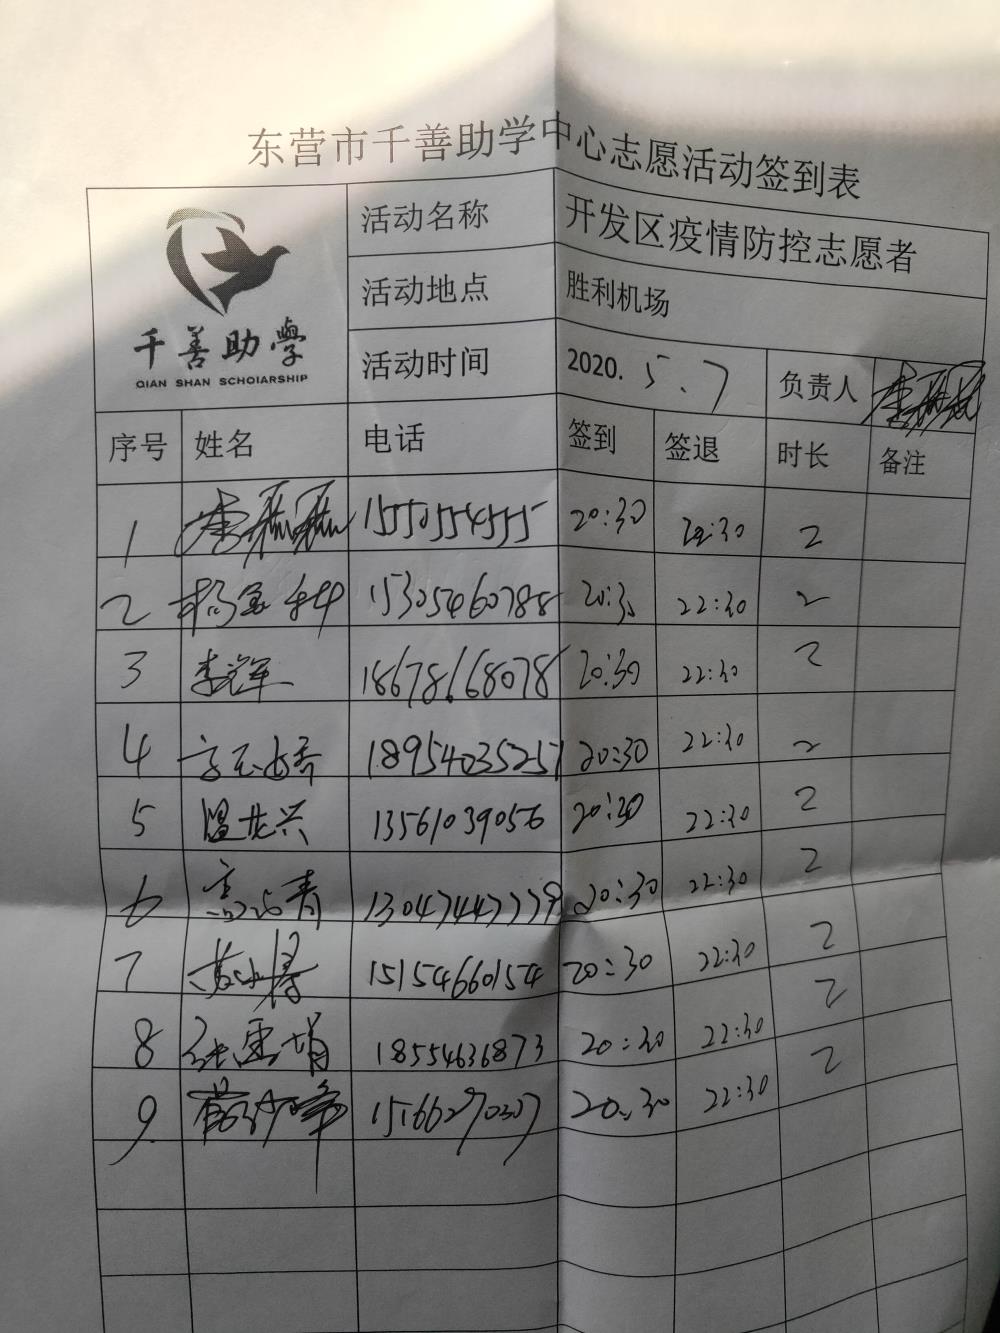 东营市千善助学中心志愿活动签到表
千善助學
QIAN SHAN SCHOIARSHIP
活动名称 开发区疫情防控志愿者
活动地点 胜利机场
活动时间 2020. 5.7 负责人
序号 姓名 电话 签到 签退 时长 备注
1 15550554555 20:30 22:30 2
2 15305460788 20:30 22:30 2
3 18678668078 20:30 22:30 2
4 18954035257 20:30 22:30 2
5 盟龙兴 13561039056 20:30 22:30 2
6 13047447779 20:30 22:30 2
7 15154660154 20:30 22:30 2
8 18554636873 20:30 22:30 2
9 15166290307 20:30 22:30 2